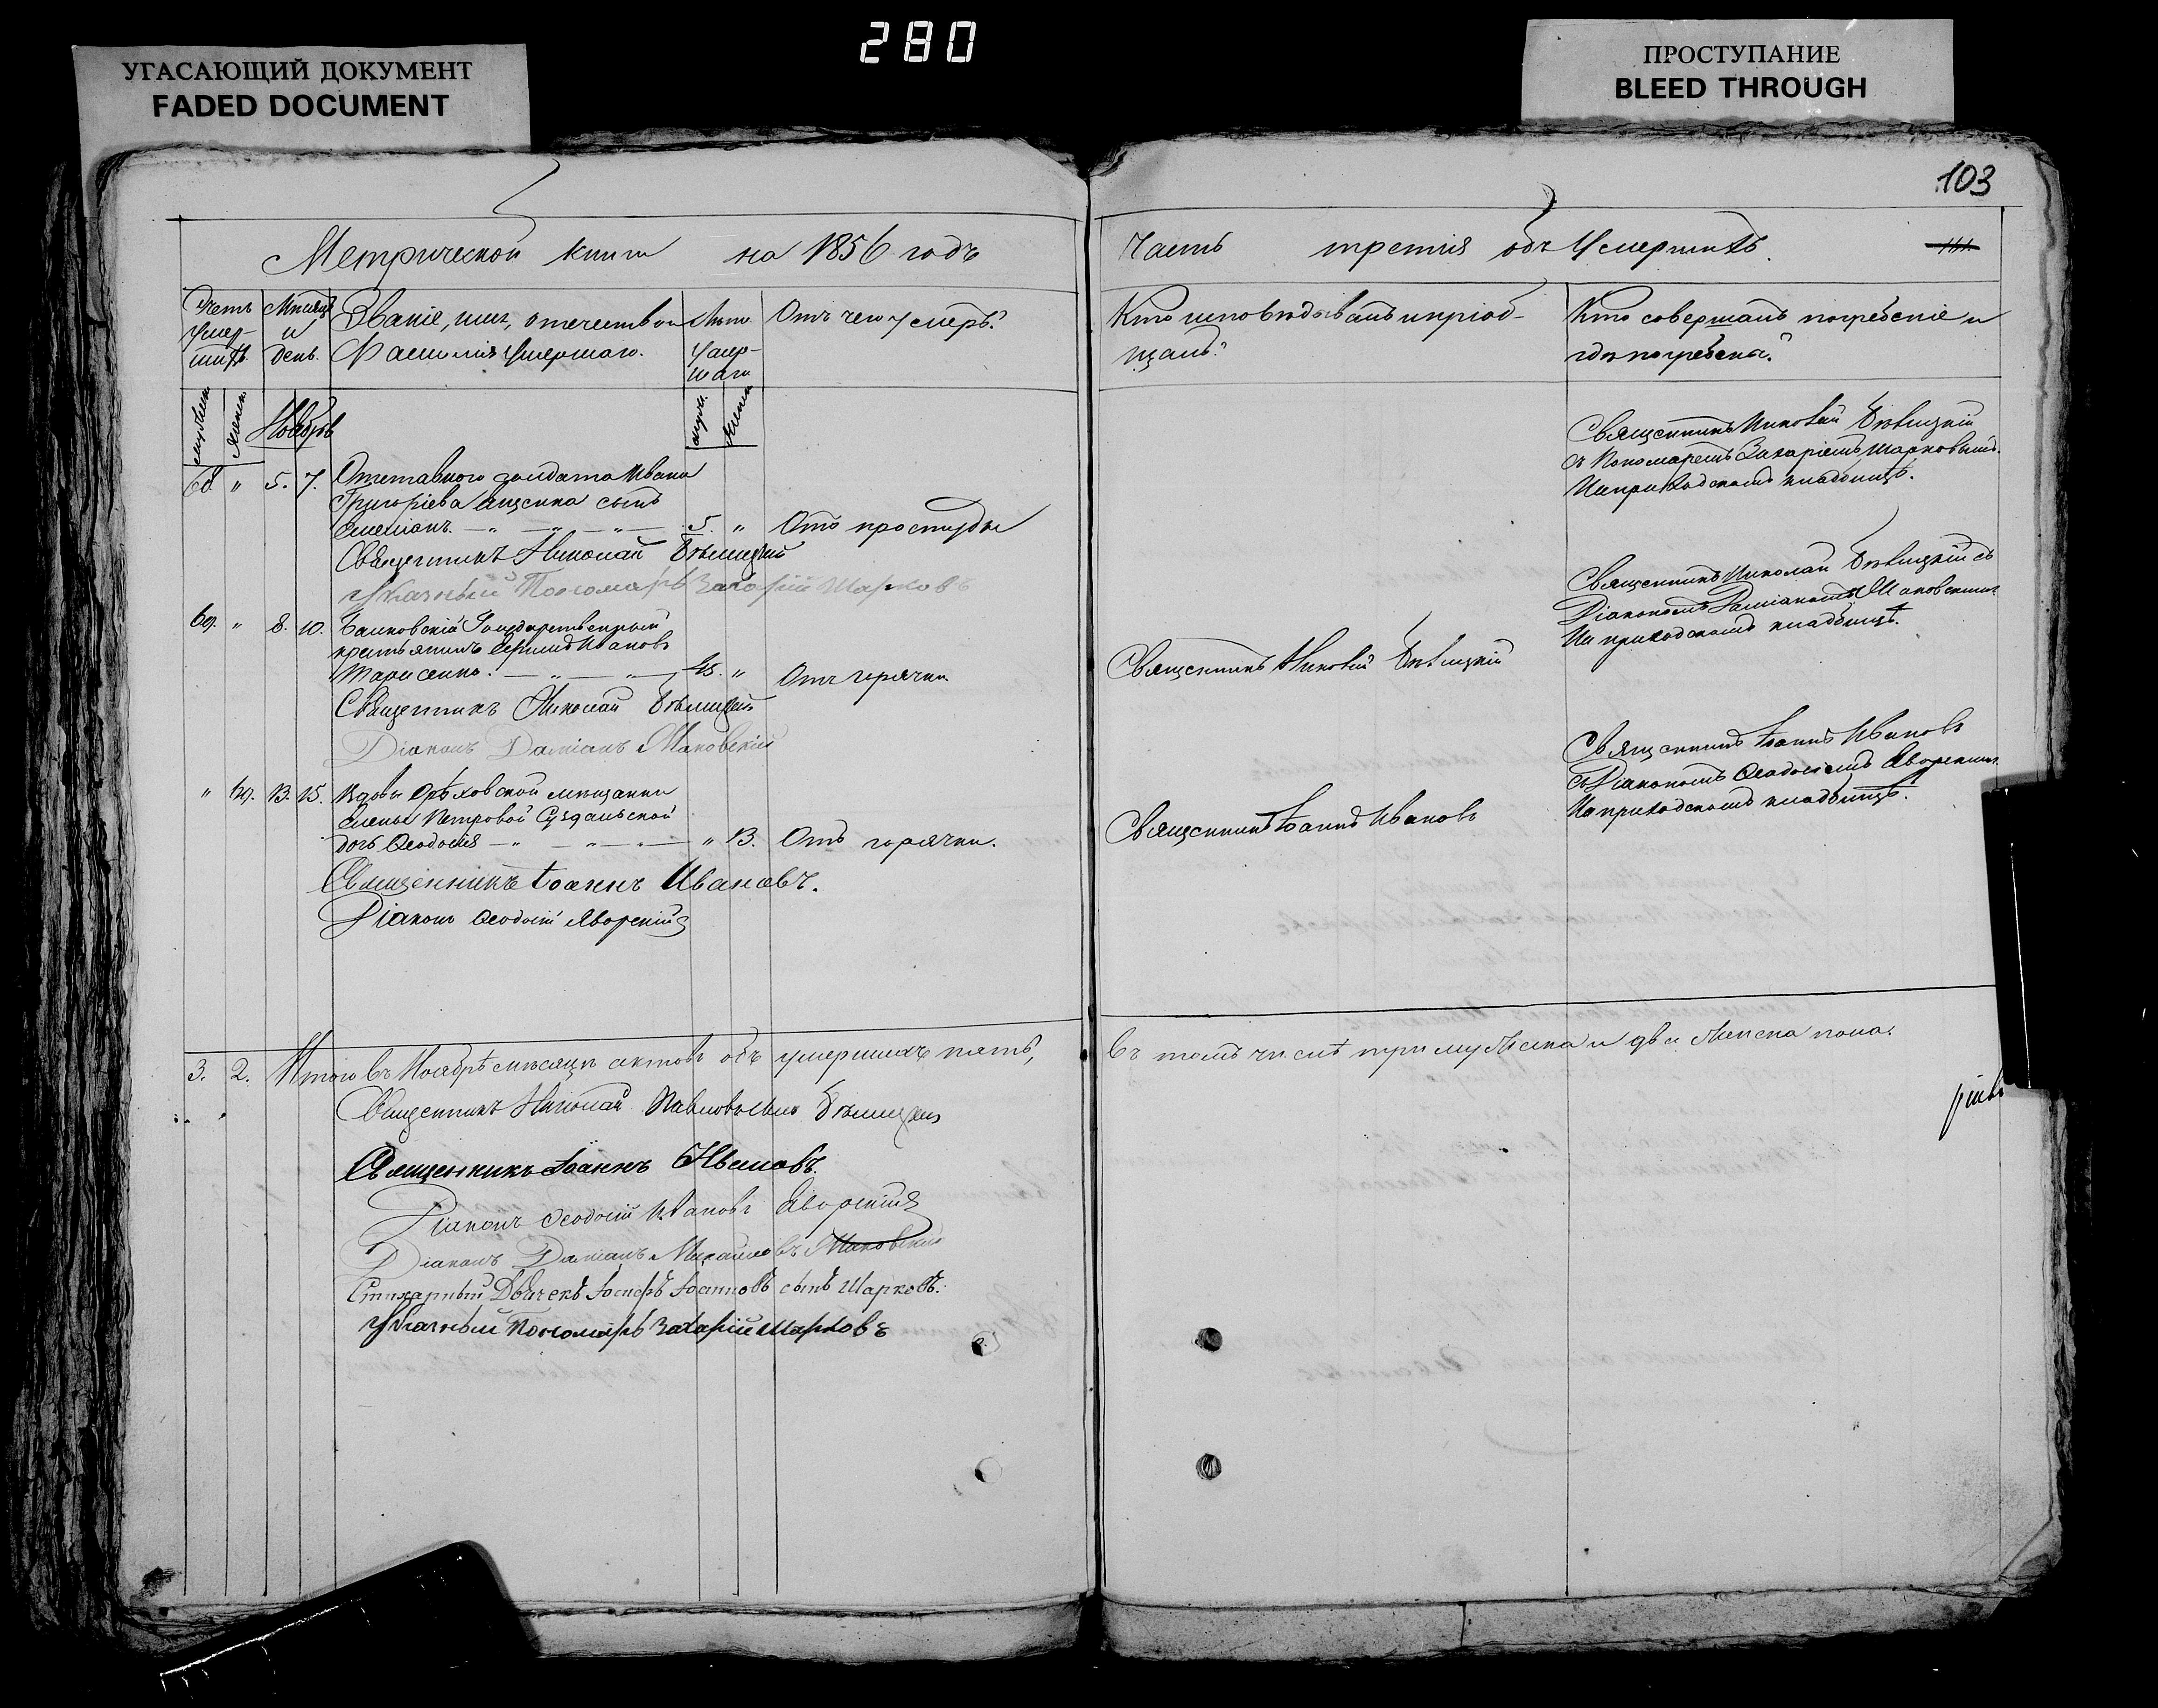 280
УГАСАЮЩИЙ ДОКУМЕНТ
FADED DOCUMENT
ПРОСТУПАНИЕ
BLEED THROUGH
103
Метрической книги на 1856 годъ
Часть третія объ Умершихъ.
Счетъ умер- шихъ
Мѣсяцъ и день.
Званіе, имя, отечество и
Фамилія умершаго.
Лѣта Умер- шаго
Отъ чего умеръ.
Кто исповѣдывалъ и пріоб-
щалъ.
Кто совершалъ погребеніе и
гдѣ погребены.
Ноябрь
68. " 5. 7. Отставного солдата Ивана
Григоріева сынъ
Симеонъ 5. " Отъ простуды
Священникъ Николай Бѣлицкій
съ Пономаремъ Захаріемъ Шарковымъ.
На приходскомъ кладбищѣ.
Священникъ Николай Бѣлицкій
Указный Пономарь Захарій Шарковъ
69. " 8. 10. Государственный
крестьянинъ Ивановъ
45. " Отъ горячки.
Священникъ Николай Бѣлицкій
Священникъ Николай Бѣлицкій съ
Діакономъ Даміаномъ Маковскимъ
На приходскомъ кладбищѣ.
Священникъ Николай Бѣлицкій
Діаконъ Даміанъ Маковскій
" 69. 13. 15. Вдовы Орѣховской мѣщанки
Елены Петровой Суздальской
дочь Ѳеодосія " 13. Отъ горячки.
Священникъ Іоаннъ Ивановъ
Священникъ Іоаннъ Ивановъ
съ Діакономъ Ѳеодосіемъ Яворскимъ
На приходскомъ кладбищѣ.
Священникъ Іоаннъ Ивановъ.
Діаконъ Ѳеодосій Яворскій
3. 2. Итого въ Ноябрѣ мѣсяцѣ актовъ объ умершихъ пять,
въ томъ числѣ три мужеска и два женска пола.
Священникъ Николай Павловъ сынъ Бѣлицкій
Священникъ Іоаннъ Ивановъ.
Діаконъ Ѳеодосій Ивановъ Яворскій
Діаконъ Даміанъ Михайловъ Маковскій
Стихарный Дьячекъ Іосифъ Іоанновъ сынъ Шарковъ.
Указный Пономарь Захарій Шарковъ